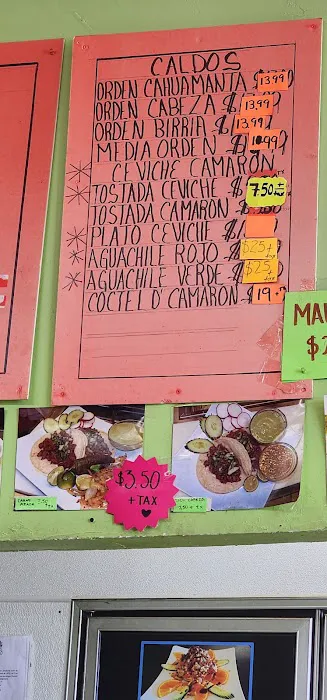 CALDOS
ORDEN CAHUAMANTA $ 13.99
ORDEN CABEZA $ 13.99
ORDEN BIRRIA $ 13.99
MEDIA ORDEN $ 10.99
* CEVICHE CAMARON
* TOSTADA CEVICHE $ 7.50
TOSTADA CAMARON $
* PLATO CEVICHE $
* AGUACHILE ROJO $25
* AGUACHILE VERDE $25
COCTEL D' CAMARON $19.
MA
$2
$3.50
+ TAX